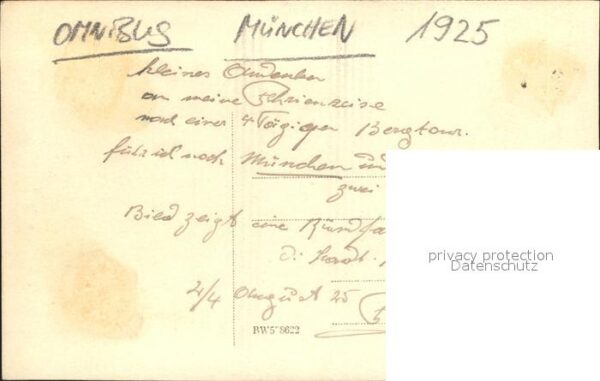 OMNIBUS MÜNCHEN 1925
kleines Andenken
an meine Ferienreise
nach einer 4 Tägigen Bergtour.
fuhr ich nach München
zwei
Bild zeigt eine Rundfa
d. Stadt.
4 August 25
privacy protection
Datenschutz